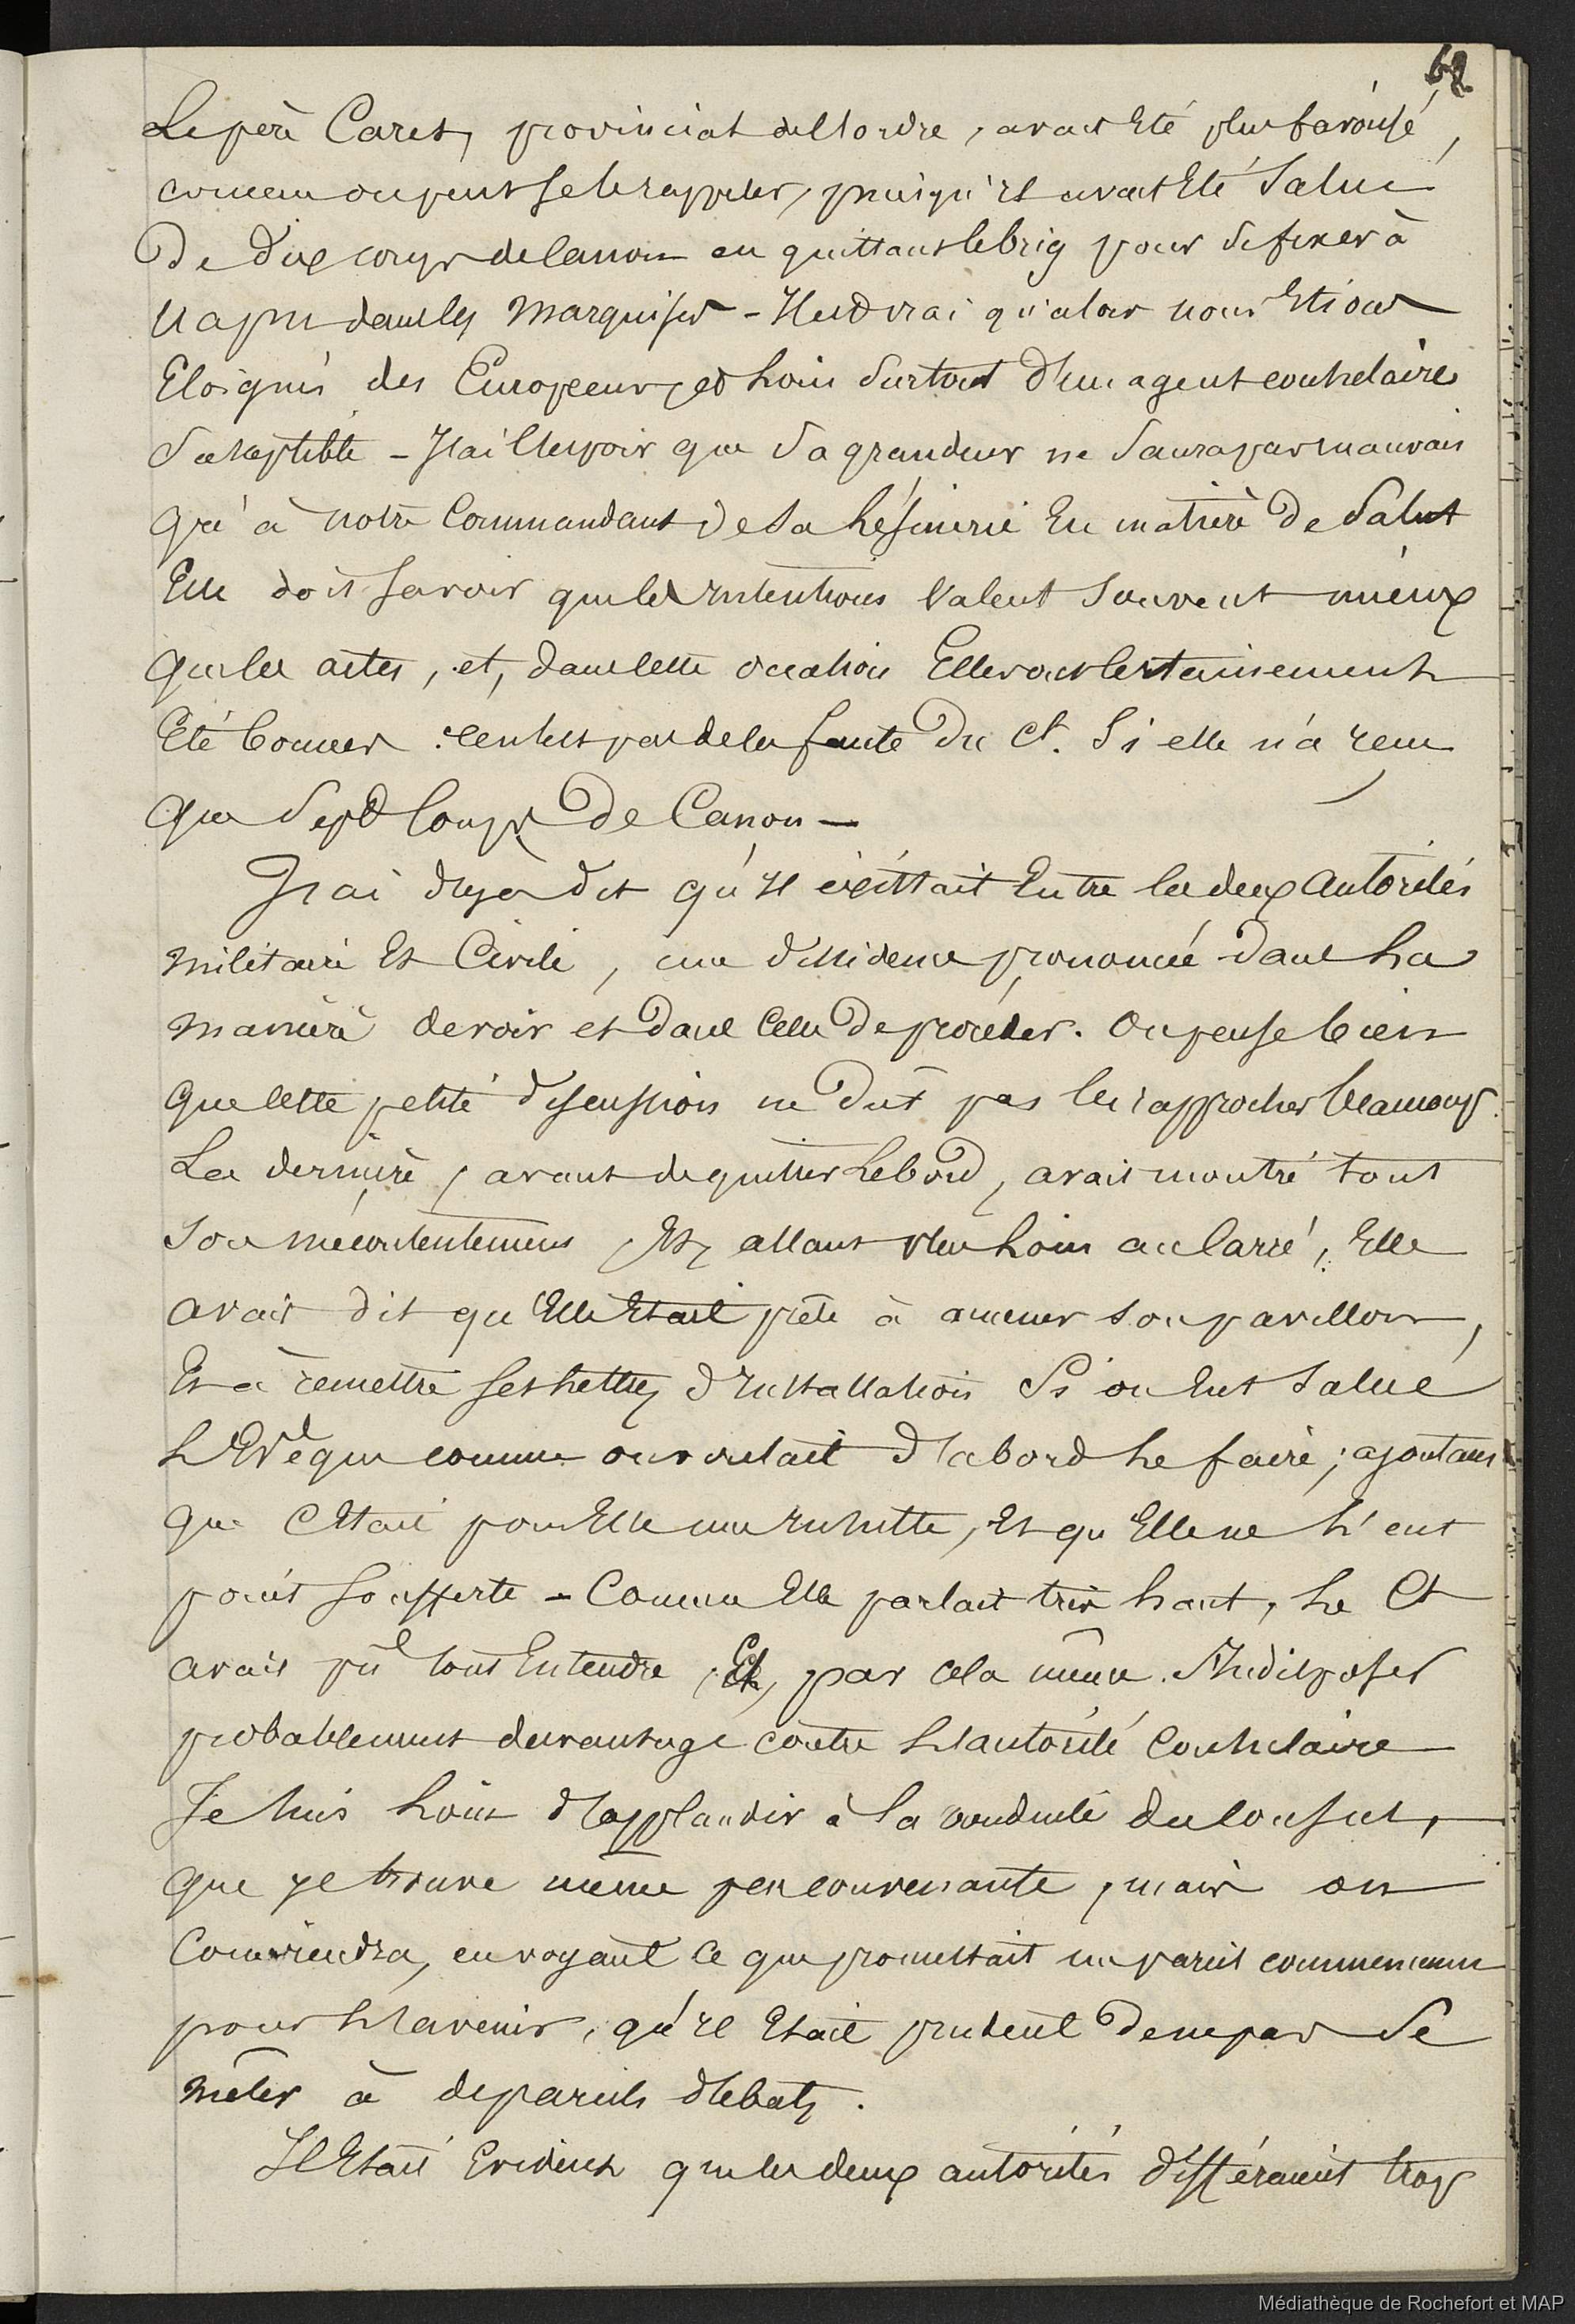 62
Le père Caret, provincial de l'ordre, avait Eté plus favorisé,
comme on peut se le rappeler, puisqu'il avait Eté Salué
De dix coups de canon en quittant le brig pour se fixer à
Uapu dans les Marquises - Il est vrai qu'alors nous Etions
Eloignés des Européens, et loin surtout d'un agent consulaire
Susceptible - J'ai l'espoir que Sa grandeur ne Saura pas mauvais
gré à notre Commandant de sa lésinerie En matière de Salut
Elle doit savoir que les Intentions Valent Souvent mieux
que les actes, et, dans cette occasion Elles ont certainement
Eté bonnes : ce n'est pas de la faute Du Ct. Si elle n'a reçu
que Sept Coups De Canon —
J'ai déjà dit qu'il éxistait Entre les deux Autorités
militaire Et Civile, une dissidence prononcée dans La
manière de voir et dans Celle De procéder. On pense bien
que cette petite discussion ne Dut pas les rapprocher beaucoup.
La dernière, avant de quitter Le bord, avait montré tout
Son mécontentement, Et, allant plus Loin au Carré, Elle
avait dit qu'Elle Etait prête à amener son pavillon,
Et à remettre ses Lettres d'Installation Si on Eut Salué
L'Evêque comme on voulait d'abord Le faire ; ajoutant
que C'Etait pour Elle une Insulte, Et qu'Elle ne L'eut
point Soufferte - Comme Elle parlait très haut, Le Ct
avait pu tout Entendre, Et, par cela même. S'Indisposer
probablement davantage contre L'autorité Consulaire
Je Suis Loin d'applaudir à la conduite du Consul,
que je trouve même peu convenante, mais on
Conviendra, en voyant ce que promettait un pareil commencement
pour L'avenir, qu'il Etait prudent De ne pas Se
mêler à de pareils débats.
Il Etait Evident que les deux autorités différaient trop
Médiathèque de Rochefort et MAP